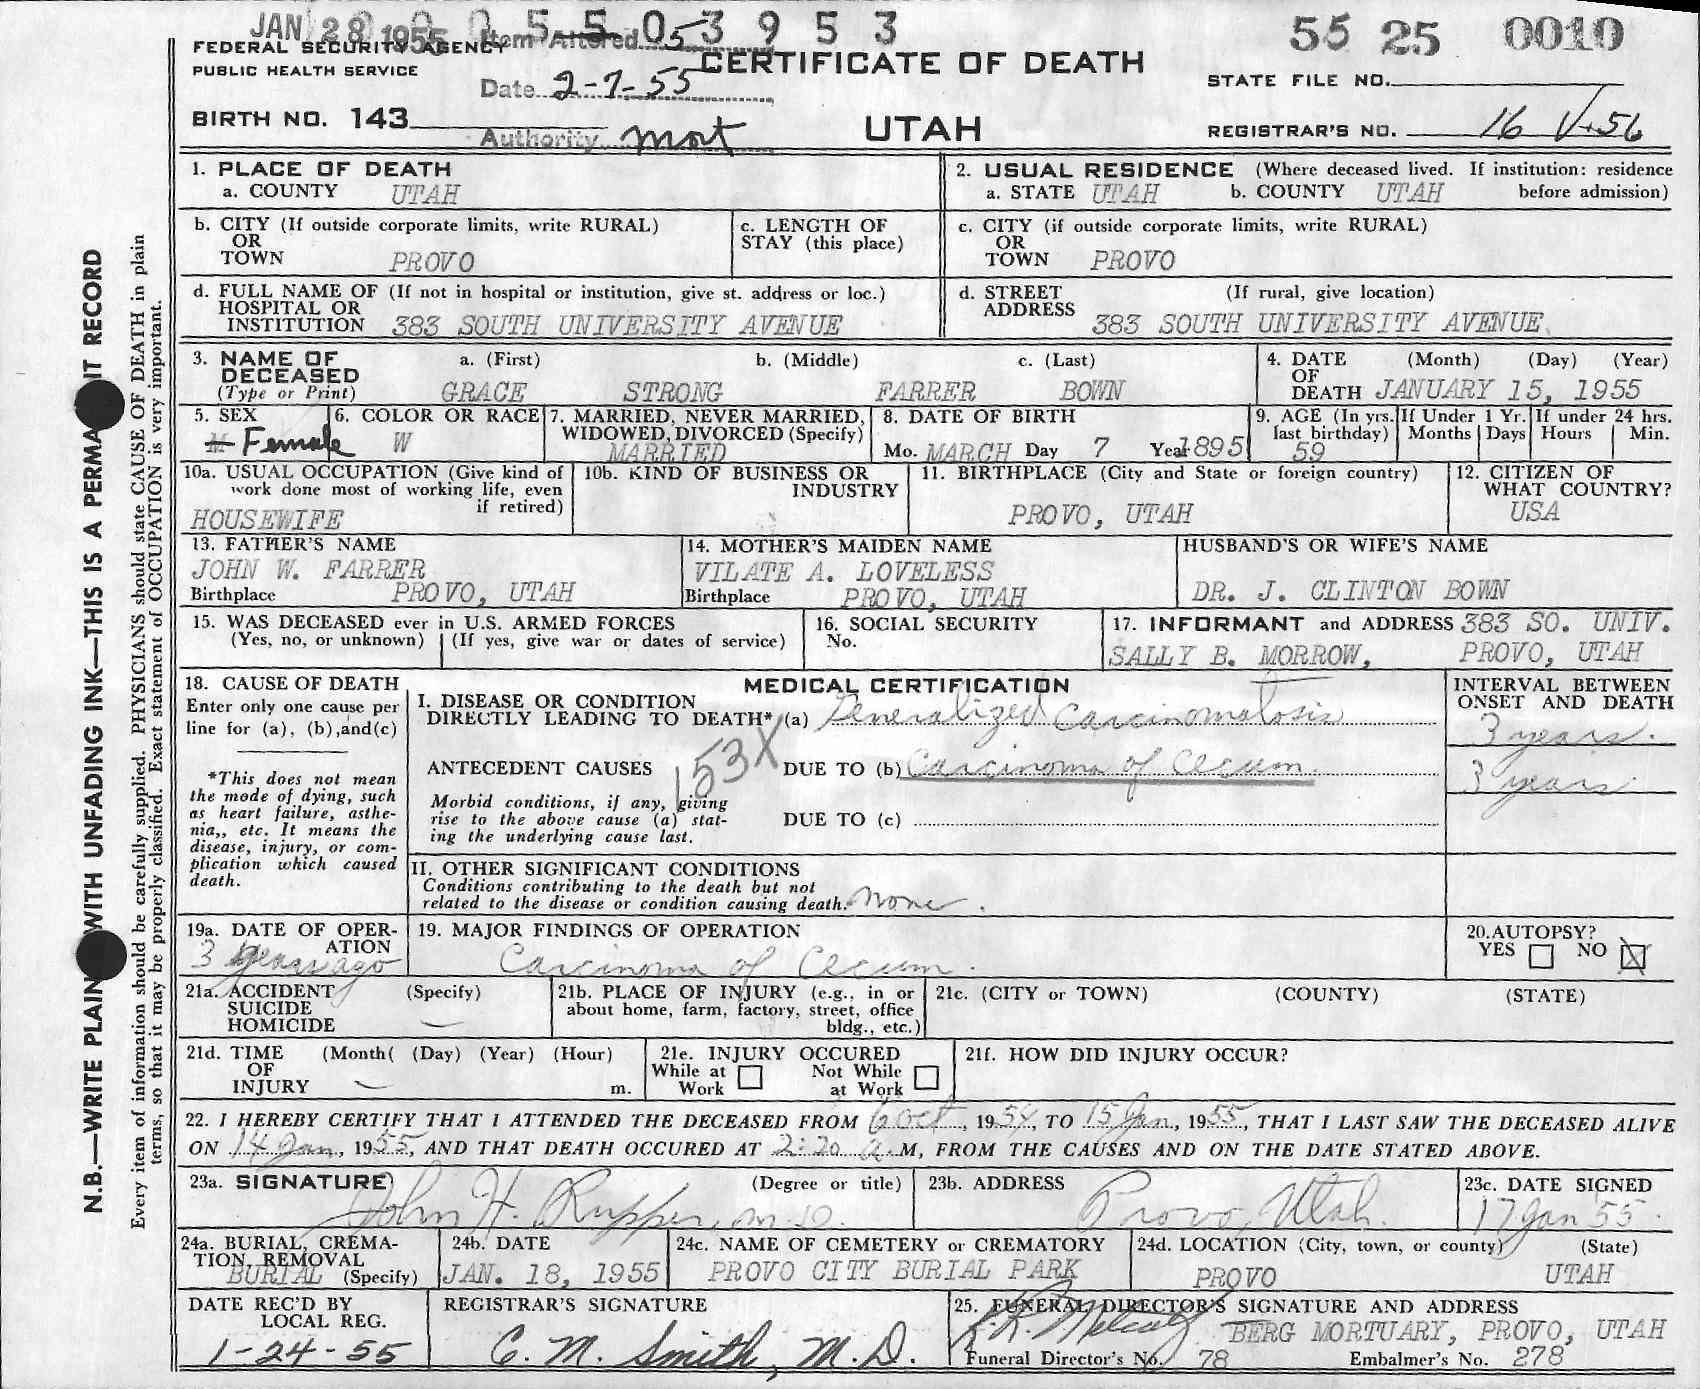 JAN 28 1955 Item Altered 5 5 5 0 3 9 5 3
55 25 0010
FEDERAL SECURITY AGENCY
PUBLIC HEALTH SERVICE
Date 2-7-55
CERTIFICATE OF DEATH
STATE FILE NO.
BIRTH NO. 143
Authority mort
UTAH
REGISTRAR'S NO. 16 V+56
1. PLACE OF DEATH
a. COUNTY UTAH
2. USUAL RESIDENCE (Where deceased lived. If institution: residence
a. STATE UTAH b. COUNTY UTAH before admission)
b. CITY (If outside corporate limits, write RURAL)
OR
TOWN PROVO
c. LENGTH OF
STAY (this place)
c. CITY (if outside corporate limits, write RURAL)
OR
TOWN PROVO
d. FULL NAME OF (If not in hospital or institution, give st. address or loc.)
HOSPITAL OR
INSTITUTION 383 SOUTH UNIVERSITY AVENUE
d. STREET (If rural, give location)
ADDRESS
383 SOUTH UNIVERSITY AVENUE
3. NAME OF a. (First) b. (Middle) c. (Last)
DECEASED
(Type or Print) GRACE STRONG FARRER BOWN
4. DATE (Month) (Day) (Year)
OF
DEATH JANUARY 15, 1955
5. SEX
M Female
6. COLOR OR RACE
W
7. MARRIED, NEVER MARRIED,
WIDOWED, DIVORCED (Specify)
MARRIED
8. DATE OF BIRTH
Mo. MARCH Day 7 Year 1895
9. AGE (In yrs.
last birthday)
59
If Under 1 Yr.
Months Days
If under 24 hrs.
Hours Min.
10a. USUAL OCCUPATION (Give kind of
work done most of working life, even
if retired)
HOUSEWIFE
10b. KIND OF BUSINESS OR
INDUSTRY
11. BIRTHPLACE (City and State or foreign country)
PROVO, UTAH
12. CITIZEN OF
WHAT COUNTRY?
USA
13. FATHER'S NAME
JOHN W. FARRER
Birthplace PROVO, UTAH
14. MOTHER'S MAIDEN NAME
VILATE A. LOVELESS
Birthplace PROVO, UTAH
HUSBAND'S OR WIFE'S NAME
DR. J. CLINTON BOWN
15. WAS DECEASED ever in U.S. ARMED FORCES
(Yes, no, or unknown) (If yes, give war or dates of service)
16. SOCIAL SECURITY
No.
17. INFORMANT and ADDRESS 383 SO. UNIV.
SALLY B. MORROW, PROVO, UTAH
18. CAUSE OF DEATH
Enter only one cause per
line for (a), (b), and (c)
*This does not mean
the mode of dying, such
as heart failure, asthe-
nia,, etc. It means the
disease, injury, or com-
plication which caused
death.
MEDICAL CERTIFICATION
I. DISEASE OR CONDITION
DIRECTLY LEADING TO DEATH* (a) Generalized Carcinomatosis
153X
ANTECEDENT CAUSES DUE TO (b) Carcinoma of Cecum
Morbid conditions, if any, giving
rise to the above cause (a) stat-
ing the underlying cause last.
DUE TO (c)
INTERVAL BETWEEN
ONSET AND DEATH
3 years.
3 years
II. OTHER SIGNIFICANT CONDITIONS
Conditions contributing to the death but not
related to the disease or condition causing death. None.
19a. DATE OF OPER-
ATION
3 years ago
19. MAJOR FINDINGS OF OPERATION
Carcinoma of Cecum.
20. AUTOPSY?
YES NO X
21a. ACCIDENT (Specify)
SUICIDE
HOMICIDE —
21b. PLACE OF INJURY (e.g., in or
about home, farm, factory, street, office
bldg., etc.)
21c. (CITY or TOWN) (COUNTY) (STATE)
21d. TIME (Month( (Day) (Year) (Hour)
OF
INJURY — m.
21e. INJURY OCCURED
While at Not While
Work at Work
21f. HOW DID INJURY OCCUR?
22. I HEREBY CERTIFY THAT I ATTENDED THE DECEASED FROM 6 Oct, 1954, TO 15 Jan, 1955, THAT I LAST SAW THE DECEASED ALIVE
ON 14 Jan, 1955, AND THAT DEATH OCCURED AT 2:20 a.M, FROM THE CAUSES AND ON THE DATE STATED ABOVE.
23a. SIGNATURE (Degree or title)
John H. Rupper, M.D.
23b. ADDRESS
Provo, Utah.
23c. DATE SIGNED
17 Jan 55.
24a. BURIAL, CREMA-
TION, REMOVAL
BURIAL (Specify)
24b. DATE
JAN. 18, 1955
24c. NAME OF CEMETERY or CREMATORY
PROVO CITY BURIAL PARK
24d. LOCATION (City, town, or county) (State)
PROVO UTAH
DATE REC'D BY
LOCAL REG.
1-24-55
REGISTRAR'S SIGNATURE
C. M. Smith, M.D.
25. FUNERAL DIRECTOR'S SIGNATURE AND ADDRESS
BERG MORTUARY, PROVO, UTAH
Funeral Director's No. 78 Embalmer's No. 278
N.B.—WRITE PLAIN WITH UNFADING INK—THIS IS A PERMA IT RECORD
Every item of information should be carefully supplied. PHYSICIANS should state CAUSE OF DEATH in plain
terms, so that it may be properly classified. Exact statement of OCCUPATION is very important.